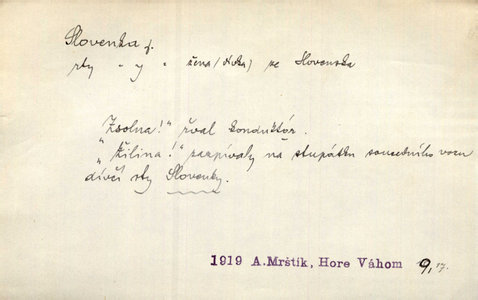 Slovenka f.
rty " y " žena/dívka) ze Slovenska
Zsolna!" řval konduktér.
"Žilina!" zazpívaly na stupátku sousedního vozu
dívčí rty Slovenky.
1919 A.Mrštík, Hore Váhom 9, 17.